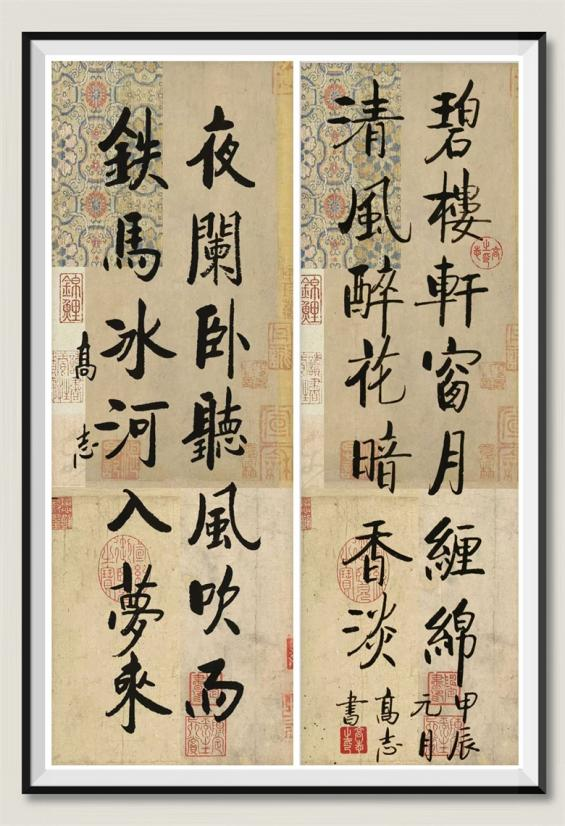 碧樓軒窗月纏綿
清風醉花暗香淡
甲辰
元月
高志
書
夜闌卧聽風吹雨
鉄馬冰河入夢來
高志
錦鯉
錦鯉